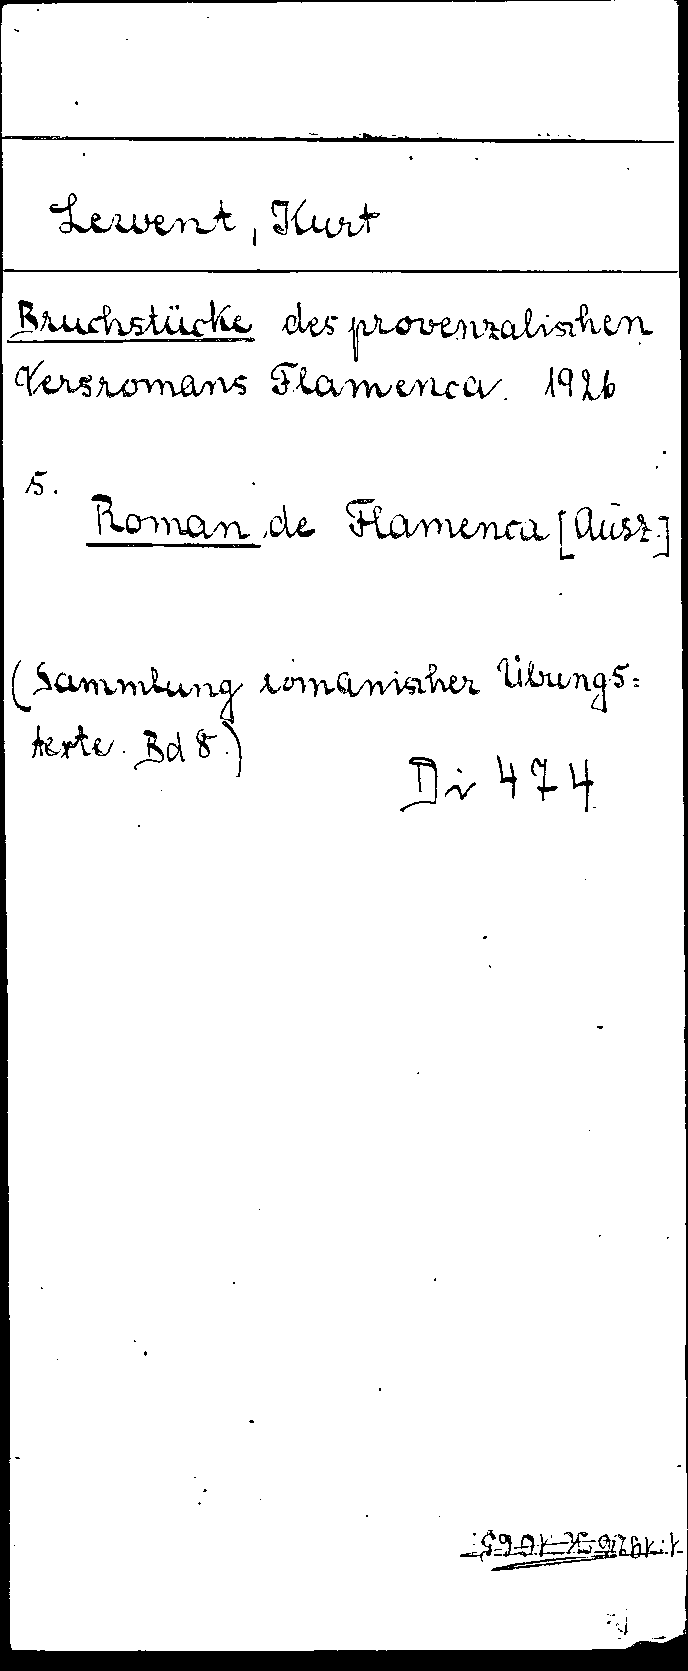 Lewent, Kurt
Bruchstücke des provenzalischen
Versromans Flamenca. 1926
s.
Roman de Flamenca [Ausz.]
(Sammlung romanischer Übungs=
texte. Bd 8.)
Di 474